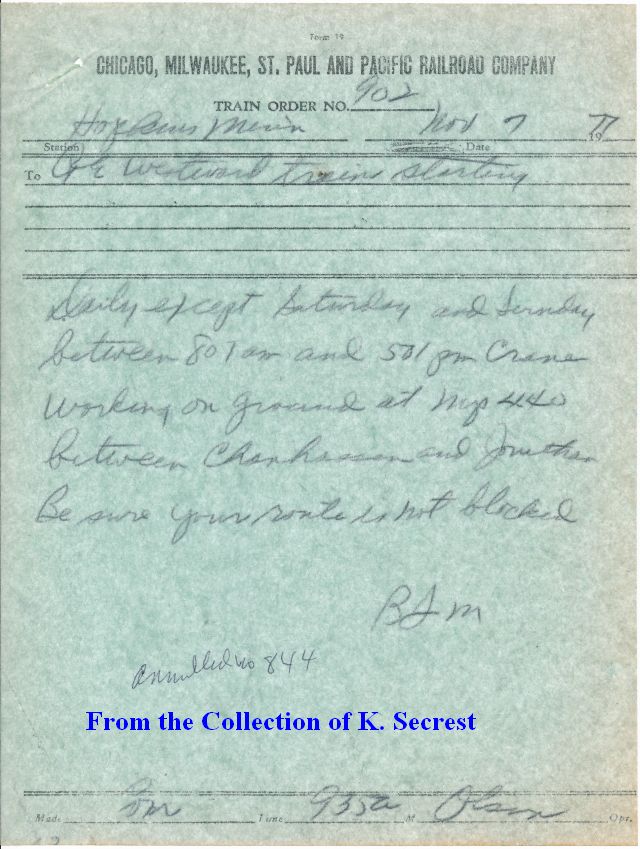 Form 19
CHICAGO, MILWAUKEE, ST. PAUL AND PACIFIC RAILROAD COMPANY
TRAIN ORDER NO. 902
Hopkins Minn Nov 7 1977
Station Date
To C&E Westward trains starting
Daily except Saturday and Sunday
between 801 am and 501 pm Crane
Working on ground at mp 440
between Chanhassen and Jonathan
Be sure your route is not blocked
annulled no 844
From the Collection of K. Secrest
Made Com Time 935a M Olson Opr.